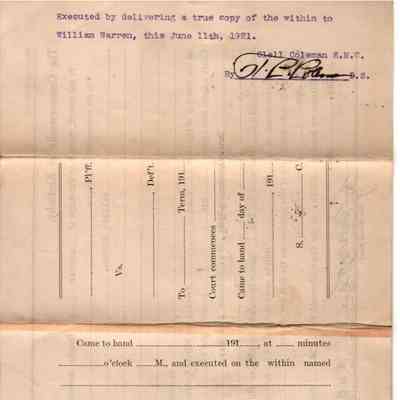 Executed by delivering a true copy of the within to
William Warren, this June 11th, 1921.
Clell Coleman S.M.C.
By H. C. Coleman D.S.
Pl'ff.
Vs.
Def't.
To Term, 191
Court commences
Came to hand day of
191
S. C.
Came to hand 191 , at minutes
o'clock M., and executed on the within named